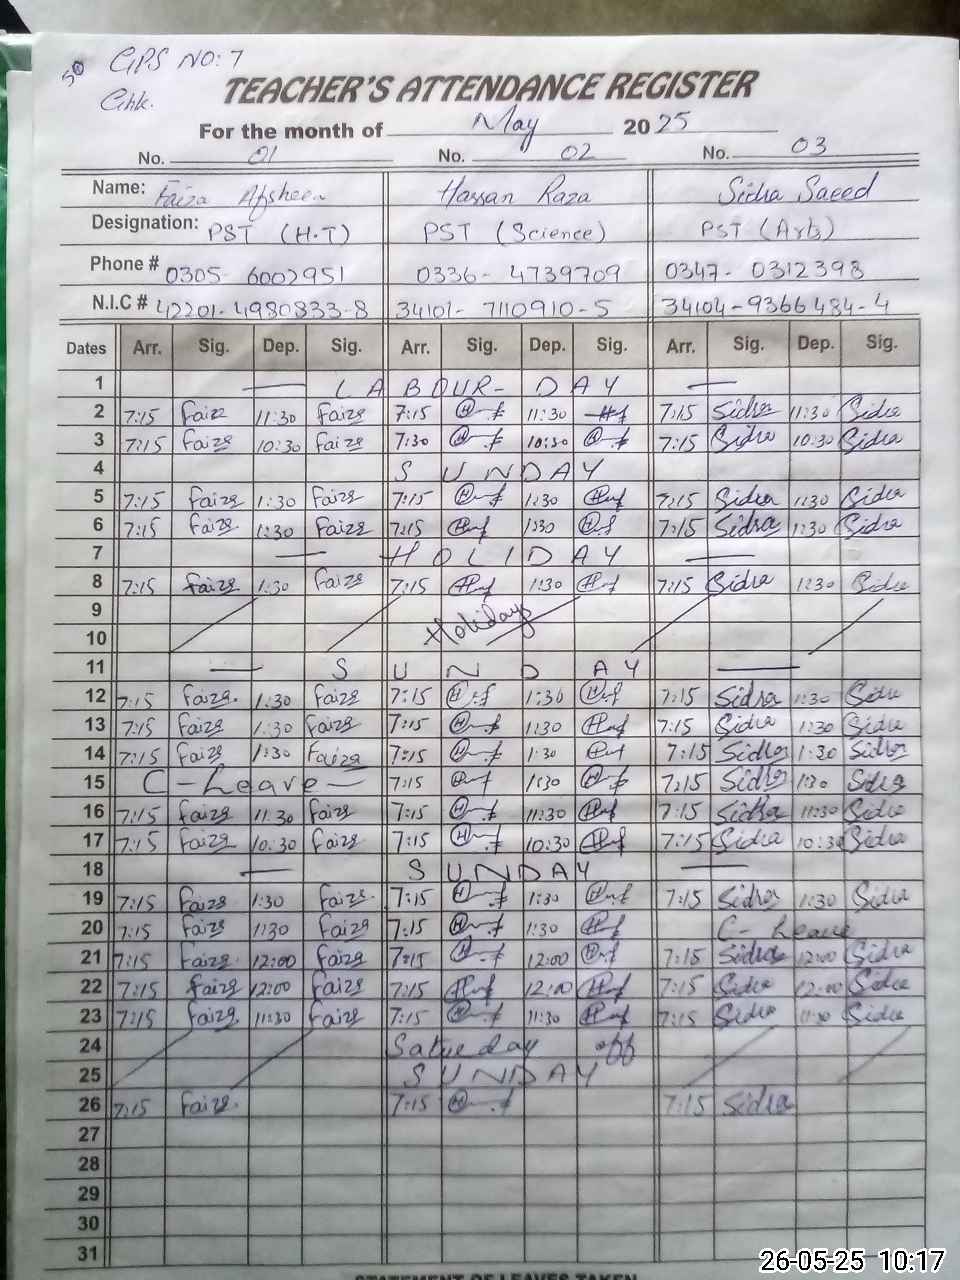 GPS NO: 7
50 Chk.
TEACHER'S ATTENDANCE REGISTER
For the month of May 2025
No. 01 No. 02 No. 03
Name: Faiza Afsheen Hassan Raza Sidra Saeed
Designation: PST (H.T) PST (Science) PST (Arts)
Phone # 0305-6002951 0336-4739709 0347-0312398
N.I.C # 42201-4980833-8 34101-7110910-5 34104-9366484-4
Dates Arr. Sig. Dep. Sig. Arr. Sig. Dep. Sig. Arr. Sig. Dep. Sig.
1 — LABOUR-DAY —
2 7:15 Faiza 11:30 Faiza 7:15 11:30 7:15 Sidra 11:30 Sidra
3 7:15 Faiza 10:30 Faiza 7:30 10:30 7:15 Sidra 10:30 Sidra
4 SUNDAY
5 7:15 Faiza 1:30 Faiza 7:15 1:30 7:15 Sidra 1:30 Sidra
6 7:15 Faiza 1:30 Faiza 7:15 1:30 7:15 Sidra 1:30 Sidra
7 — HOLIDAY —
8 7:15 Faiza 1:30 Faiza 7:15 1:30 7:15 Sidra 1:30 Sidra
9 Holidays
10
11 — SUNDAY —
12 7:15 Faiza 1:30 Faiza 7:15 1:30 7:15 Sidra 1:30 Sidra
13 7:15 Faiza 1:30 Faiza 7:15 1:30 7:15 Sidra 1:30 Sidra
14 7:15 Faiza 1:30 Faiza 7:15 1:30 7:15 Sidra 1:30 Sidra
15 C-Leave — 7:15 1:30 7:15 Sidra 1:30 Sidra
16 7:15 Faiza 11:30 Faiza 7:15 11:30 7:15 Sidra 11:30 Sidra
17 7:15 Faiza 10:30 Faiza 7:15 10:30 7:15 Sidra 10:30 Sidra
18 — SUNDAY —
19 7:15 Faiza 1:30 Faiza 7:15 1:30 7:15 Sidra 1:30 Sidra
20 7:15 Faiza 1:30 Faiza 7:15 1:30 C-Leave
21 7:15 Faiza 12:00 Faiza 7:15 12:00 7:15 Sidra 12:00 Sidra
22 7:15 Faiza 12:00 Faiza 7:15 12:00 7:15 Sidra 12:00 Sidra
23 7:15 Faiza 11:30 Faiza 7:15 11:30 7:15 Sidra 11:30 Sidra
24 Satueday off
25 SUNDAY
26 7:15 Faiza 7:15 7:15 Sidra
27
28
29
30
31
STATEMENT OF LEAVES TAKEN
26-05-25 10:17